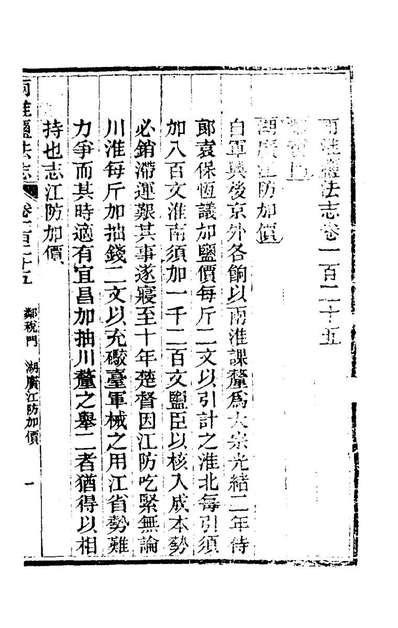 兩淮鹽法志卷一百二十五
湖廣江防加價
自軍興後京外各餉以兩淮課釐爲大宗光緒二年侍
郎袁保恆議加鹽價每斤二文以引計之淮北每引須
加八百文淮南須加一千二百文鹽臣以核入成本勢
必銷滯運艱其事遂寢至十年楚督因江防吃緊無論
川淮每斤加抽錢二文以充礮臺軍械之用江省勢難
力爭而其時適有宜昌加抽川釐之舉二者猶得以相
持也志江防加價
兩淮鹽法志
卷一百二十五
湖廣江防加價
一